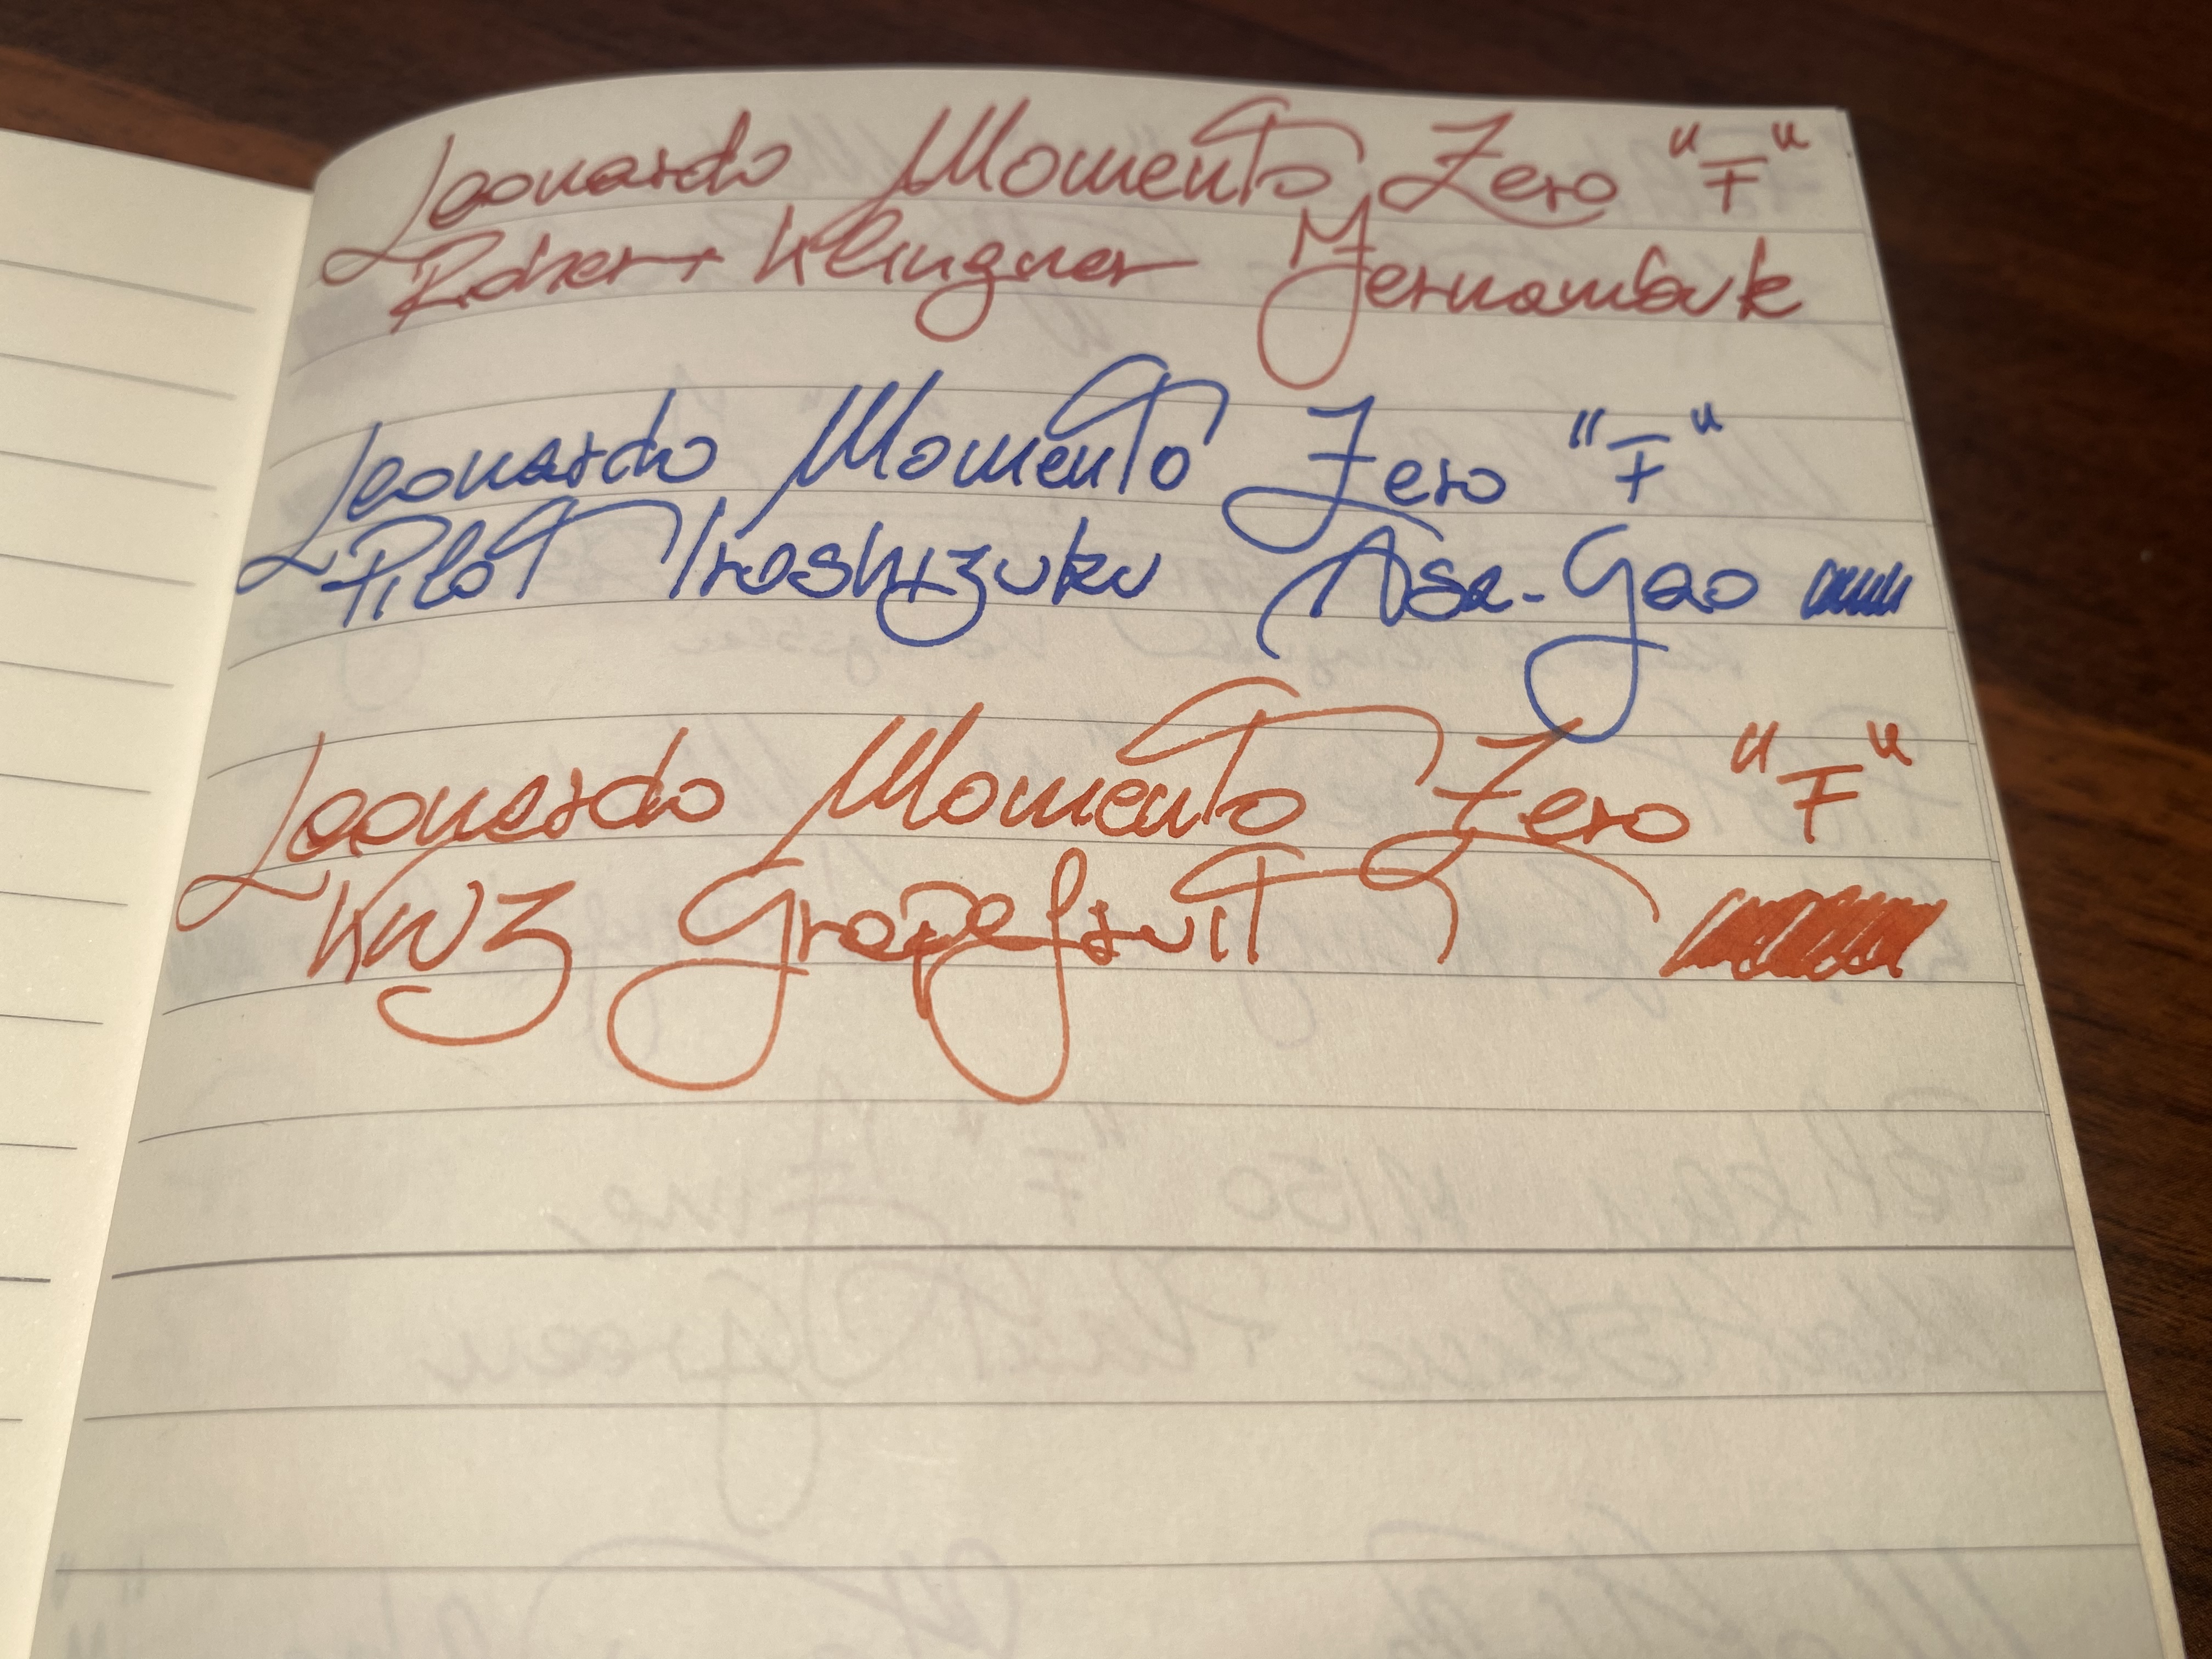 Leonardo Momento Zero "F"
Rohrer + Klingner Fernambuk
Leonardo Momento Zero "F"
Pilot Iroshizuku Asa-Gao
Leonardo Momento Zero "F"
KWZ Grapefruit